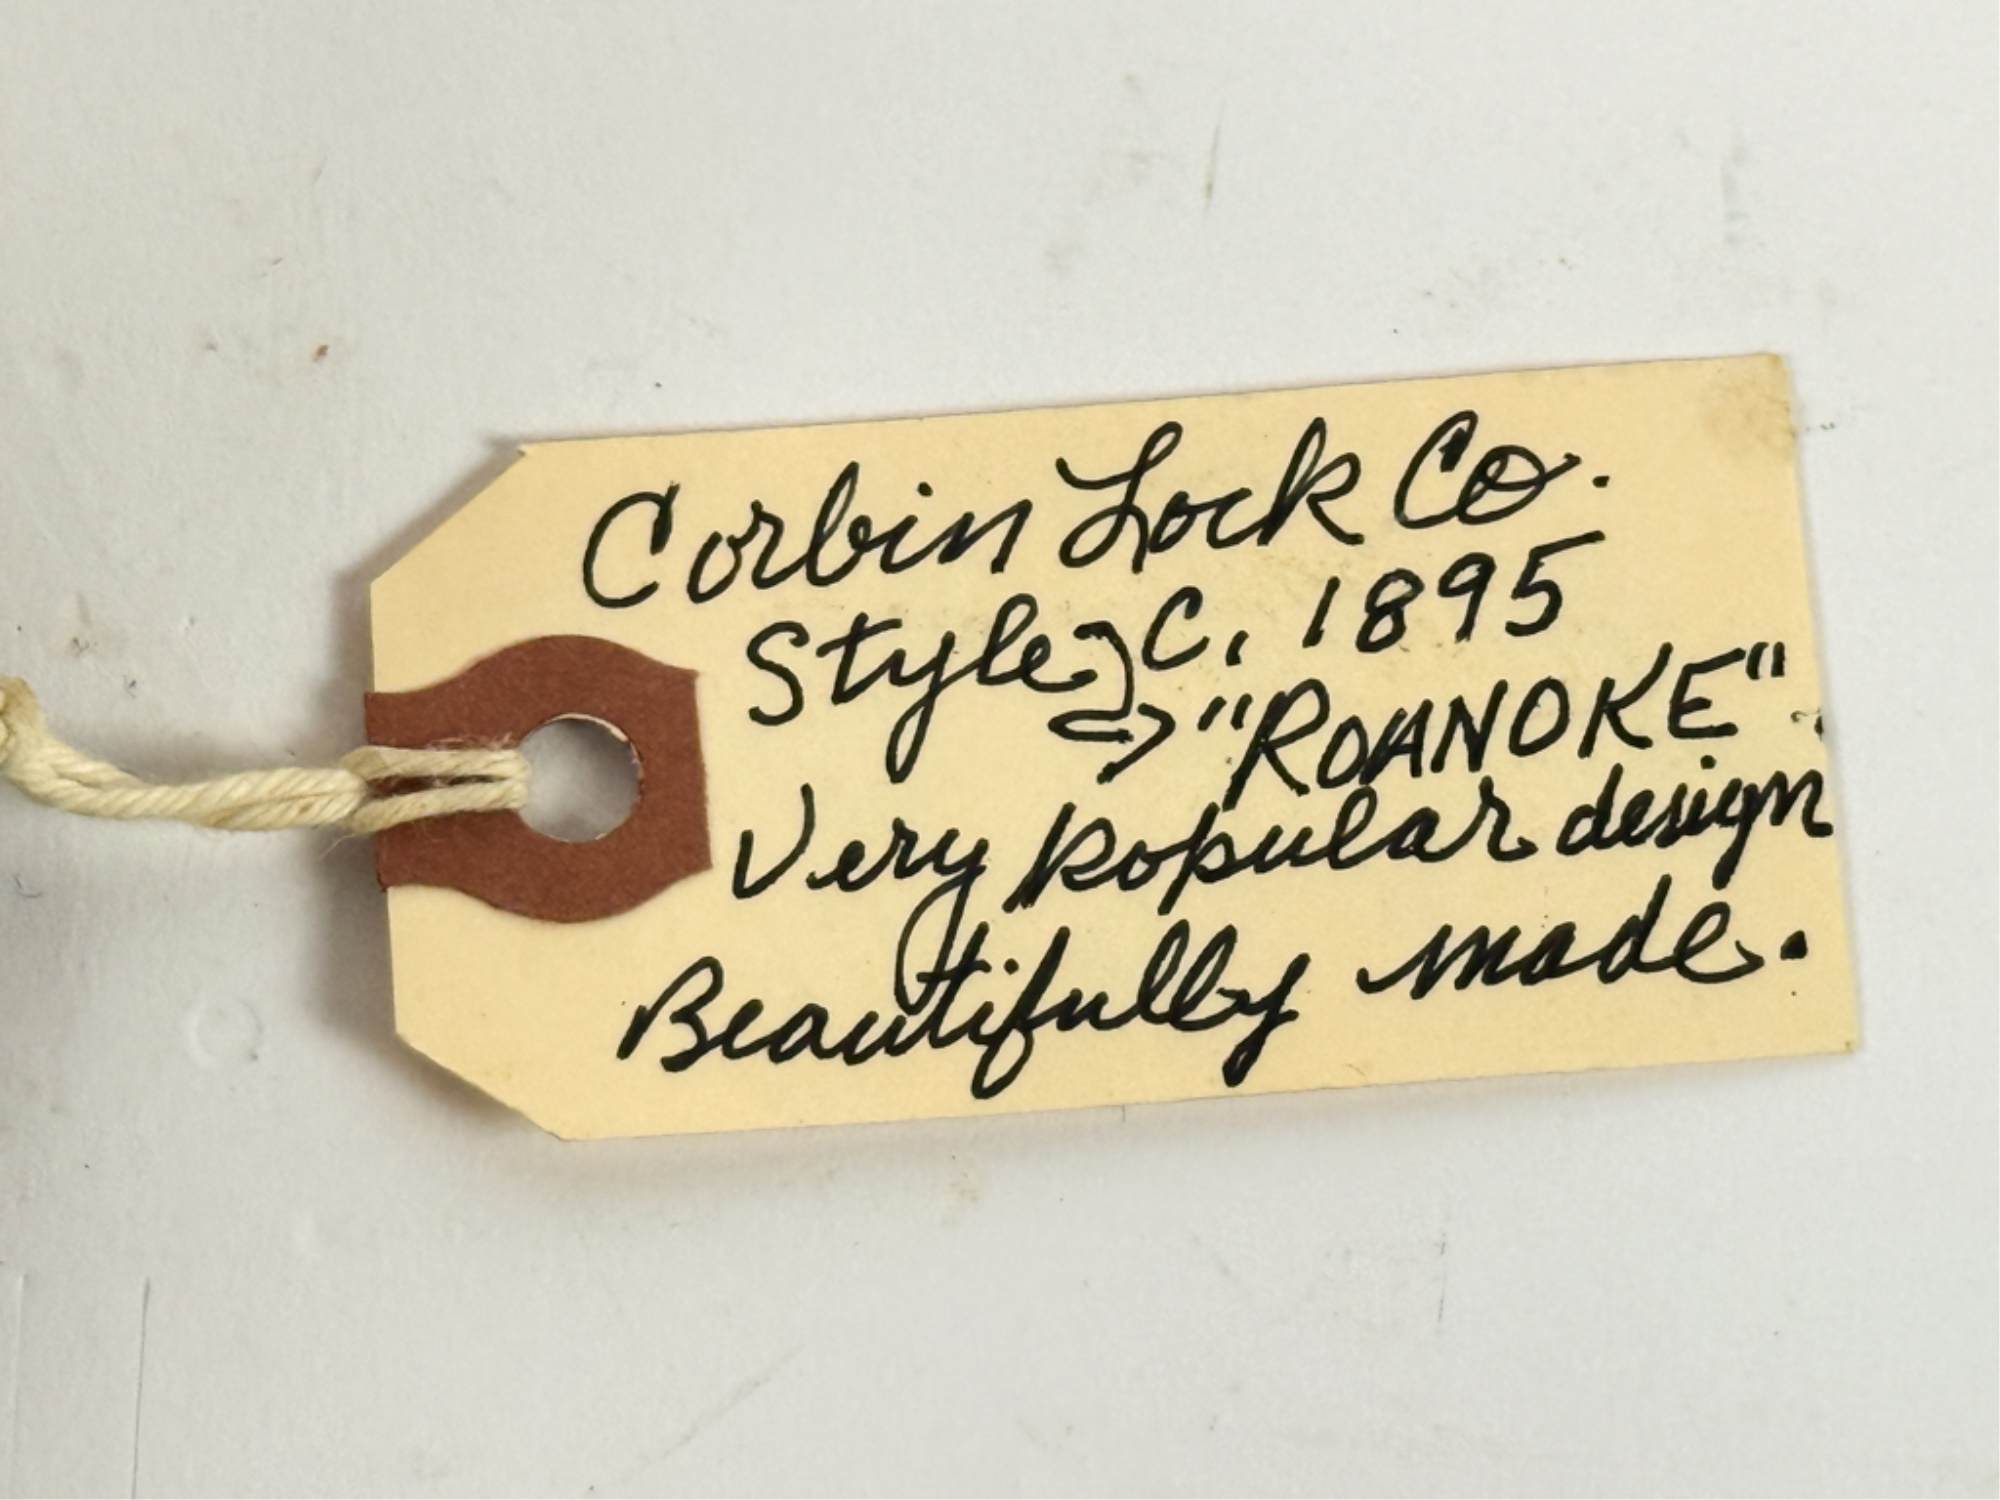 Corbin Lock Co.
Style C. 1895
"ROANOKE"
Very popular design
Beautifully made.